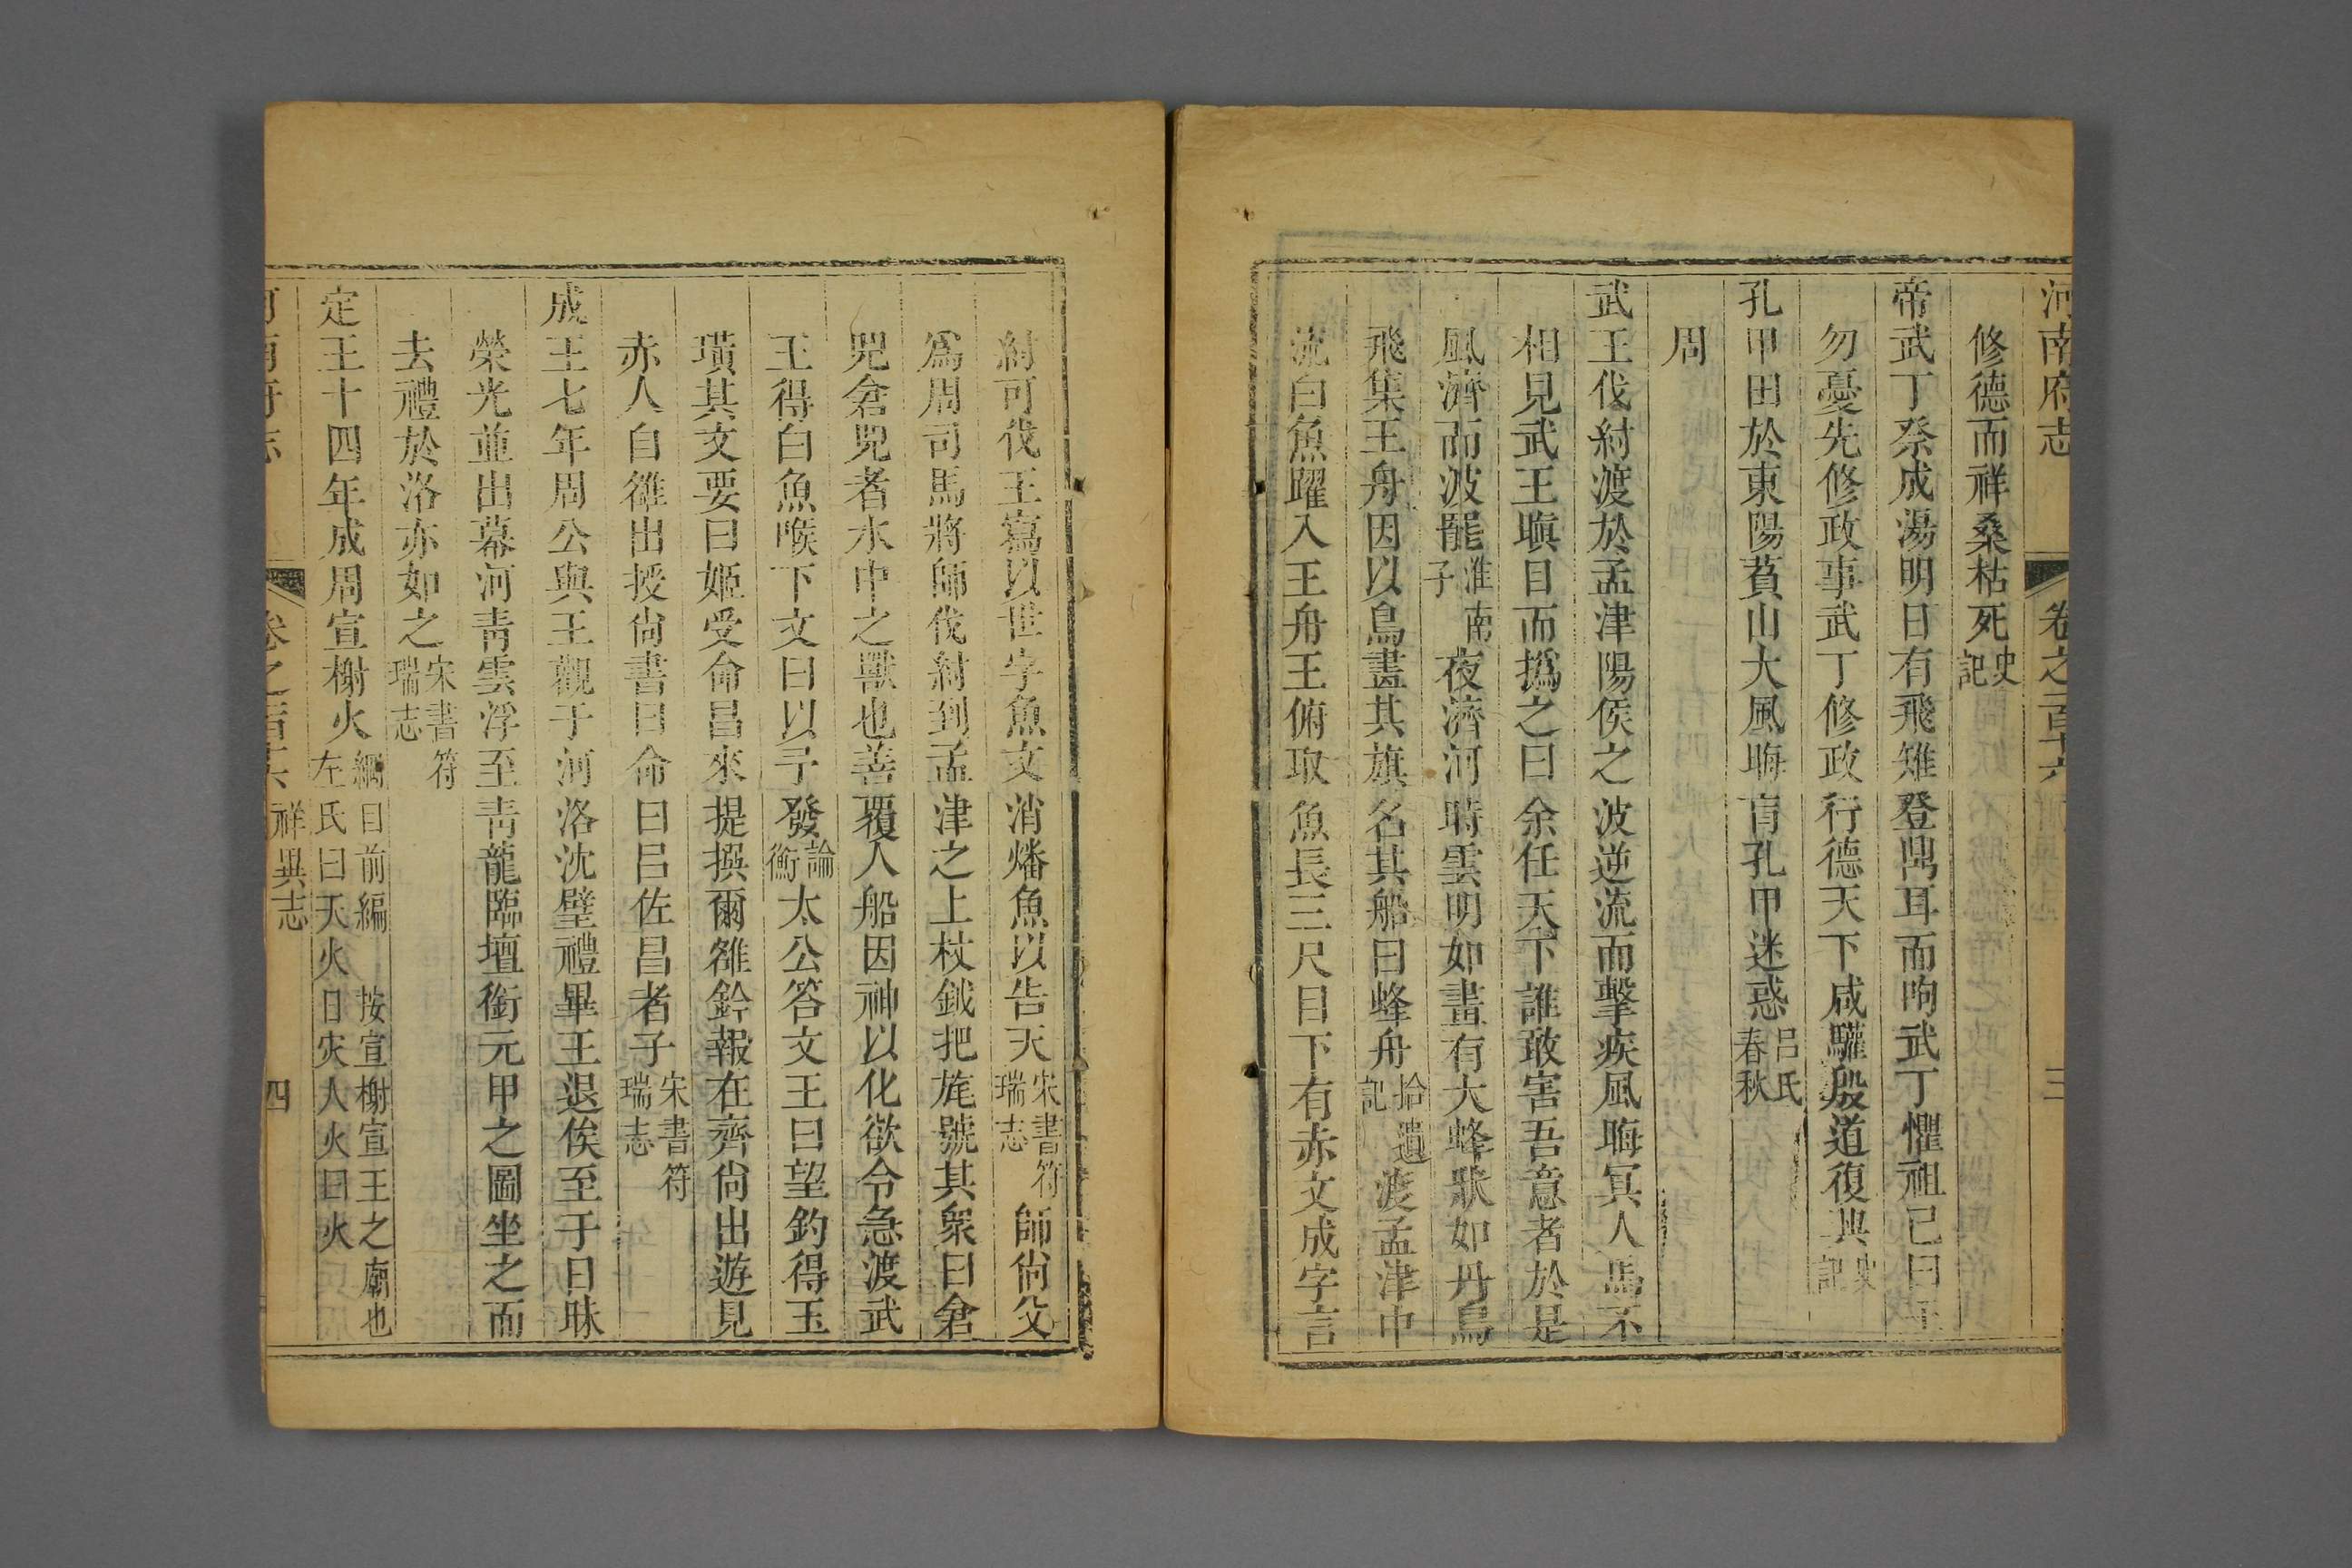 河南府志 卷之一百十六 三
修德而祥桑枯死史記
帝武丁祭成湯明日有飛雉登鼎耳而呴武丁懼祖己曰王
勿憂先修政事武丁修政行德天下咸驩殷道復興史記
孔甲田於東陽萯山大風晦盲孔甲迷惑呂氏春秋
周
武王伐紂渡於孟津陽侯之波逆流而擊疾風晦冥人馬不
相見武王瞋目而撝之曰余任天下誰敢害吾意者於是
風濟而波罷淮南子夜濟河時雲明如晝有大蜂狀如丹鳥
飛集王舟因以鳥畫其旗名其船曰蜂舟拾遺記渡孟津中
流白魚躍入王舟王俯取魚長三尺目下有赤文成字言
紂可伐王寫以世字魚文消燔魚以告天宋書符瑞志師尚父
爲周司馬將師伐紂到孟津之上杖鉞把旄號其衆曰倉
兕倉兕者水中之獸也善覆人船因神以化欲令急渡武
王得白魚喉下文曰以予發論衡太公答文王曰望釣得玉
璜其文要曰姬受命昌來提撰爾雒鈐報在齊尚出遊見
赤人自雒出授尚書曰命曰呂佐昌者子宋書符瑞志
成王七年周公與王觀于河洛沈璧禮畢王退俟至于日昧
榮光並出幕河青雲浮至青龍臨壇銜元甲之圖坐之而
去禮於洛亦如之宋書符瑞志
定王十四年成周宣榭火綱目前編 按宣榭宣王之廟也左氏曰天火曰灾人火曰火
河南府志 卷之一百十六 祥異志 四